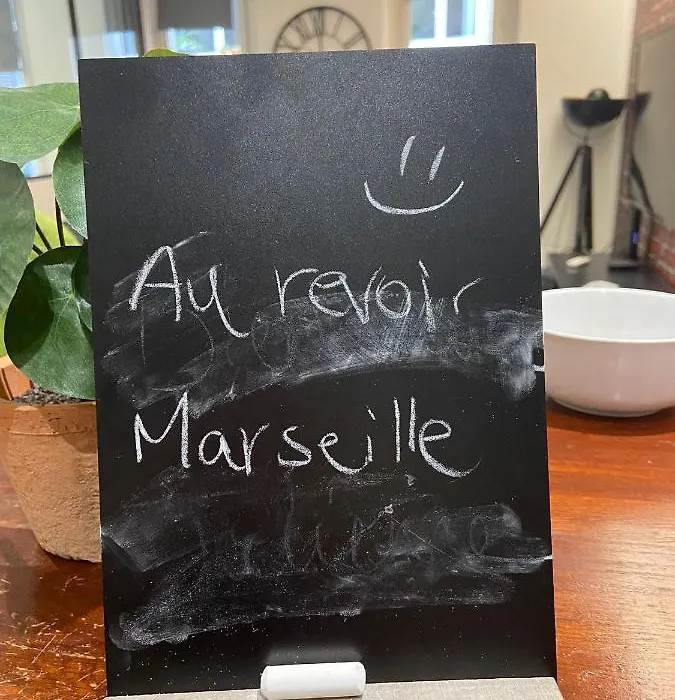 Au revoir
Marseille